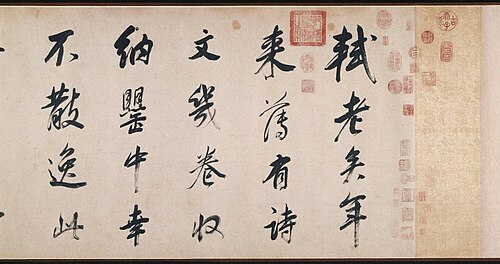 軾老矣年
来薄有詩
文幾卷收
納罌中幸
不散逸此